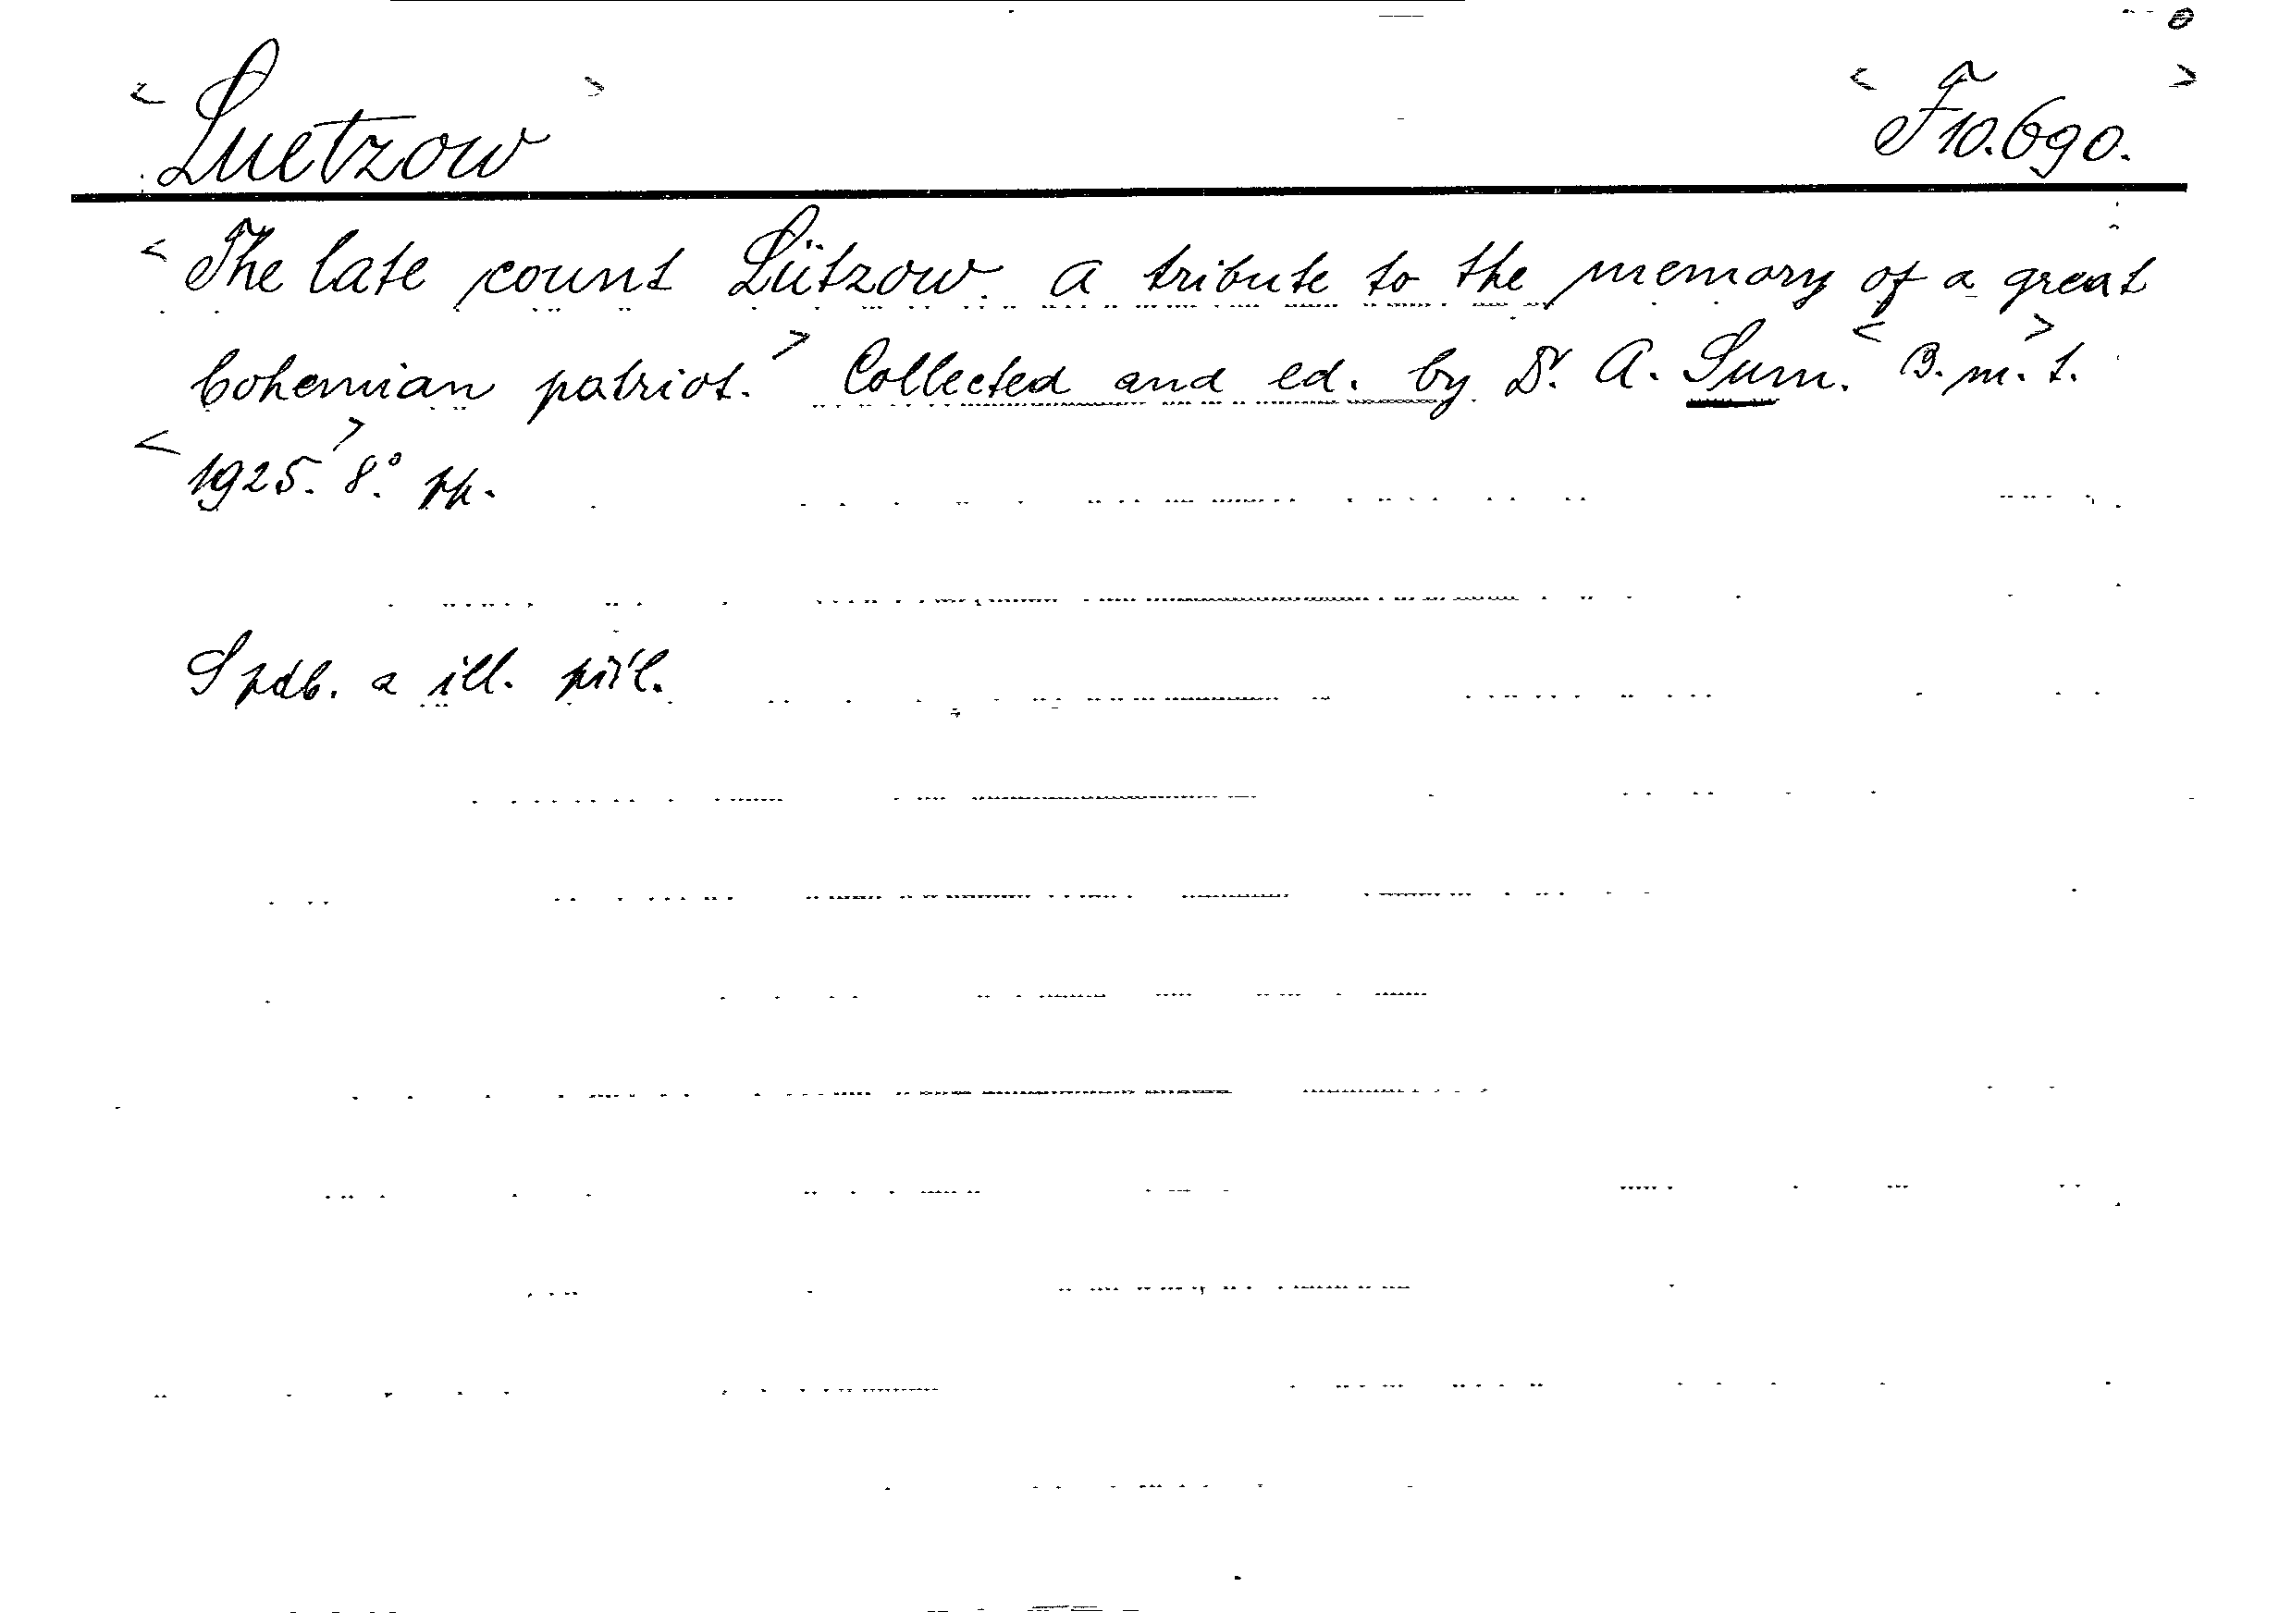 < Luetzow > < F 10.690. >
< The late count Lützow. A tribute to the memory of a great
bohemian patriot. > Collected and ed. by Dr. A. Sum. < B. m. > t.
< 1925. > 8°. pk.
S pdb. a ill. příl.